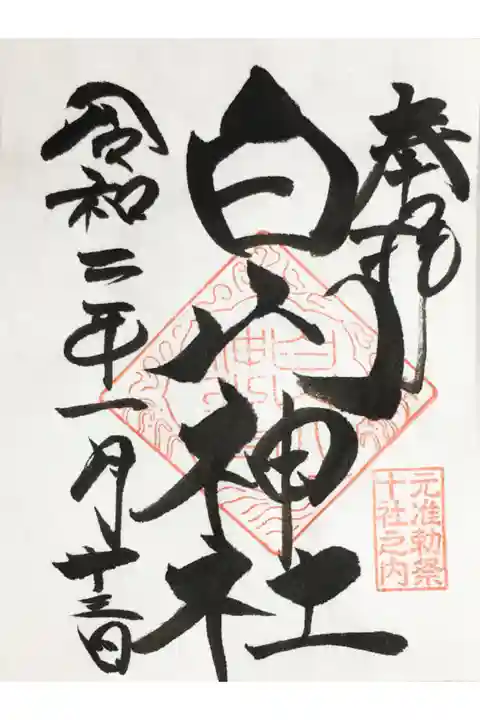 奉拝
白山神社
元准勅祭
十社之内
令和二年一月十三日